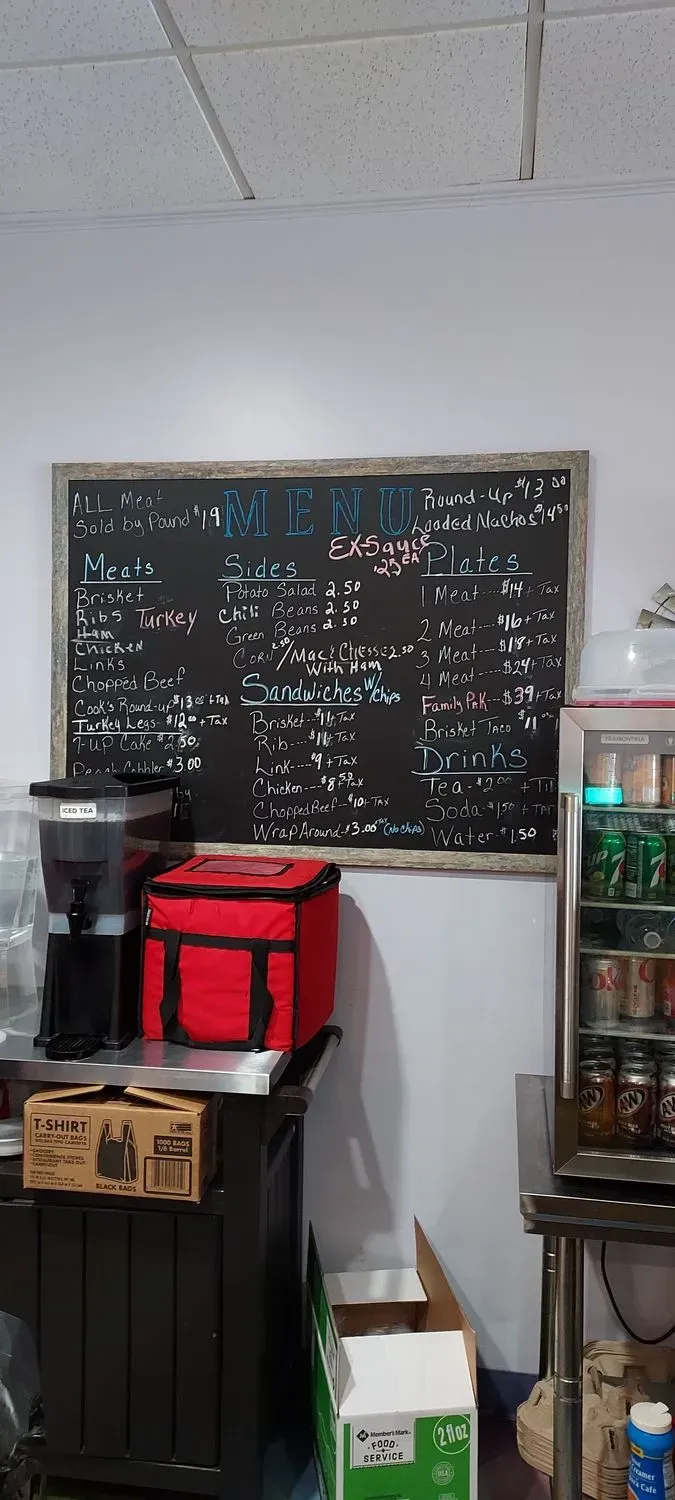 ALL Meat
Sold by Pound $19
MENU
EX-Sauce
.25 EA
Round-Up $13.00
Loaded Nachos $14.50
Meats
Brisket
Ribs
Turkey
Ham
Chicken
Links
Chopped Beef
Cook's Round-up $13.00 + TAX
Turkey Legs - $12.00 + TAX
7-UP Cake $2.50
Peach Cobbler $3.00
Sides
Potato Salad 2.50
Chili Beans 2.50
Green Beans 2.50
Corn 2.50 / Mac & Cheese 2.50
With Ham
Sandwiches W/ Chips
Brisket - $11 + TAX
Rib - $11 + TAX
Link - $9 + TAX
Chicken - $8.50 + TAX
Chopped Beef - $10 + TAX
Wrap Around - $3.00 + TAX (No Chips)
Plates
1 Meat - $14 + TAX
2 Meat - $16 + TAX
3 Meat - $18 + TAX
4 Meat - $24 + TAX
Family Pak - $39 + TAX
Brisket Taco $11
Drinks
Tea - $2.00 +
Soda - $1.50 + TAX
Water - $1.50
ICED TEA
TRAMONTINA
T-SHIRT
CARRY-OUT BAGS
1000 BAGS
1/6 Barrel
BLACK BAGS
Member's Mark
FOOD
SERVICE
2 fl oz
USA
A&W
A&W
Creamer
Café